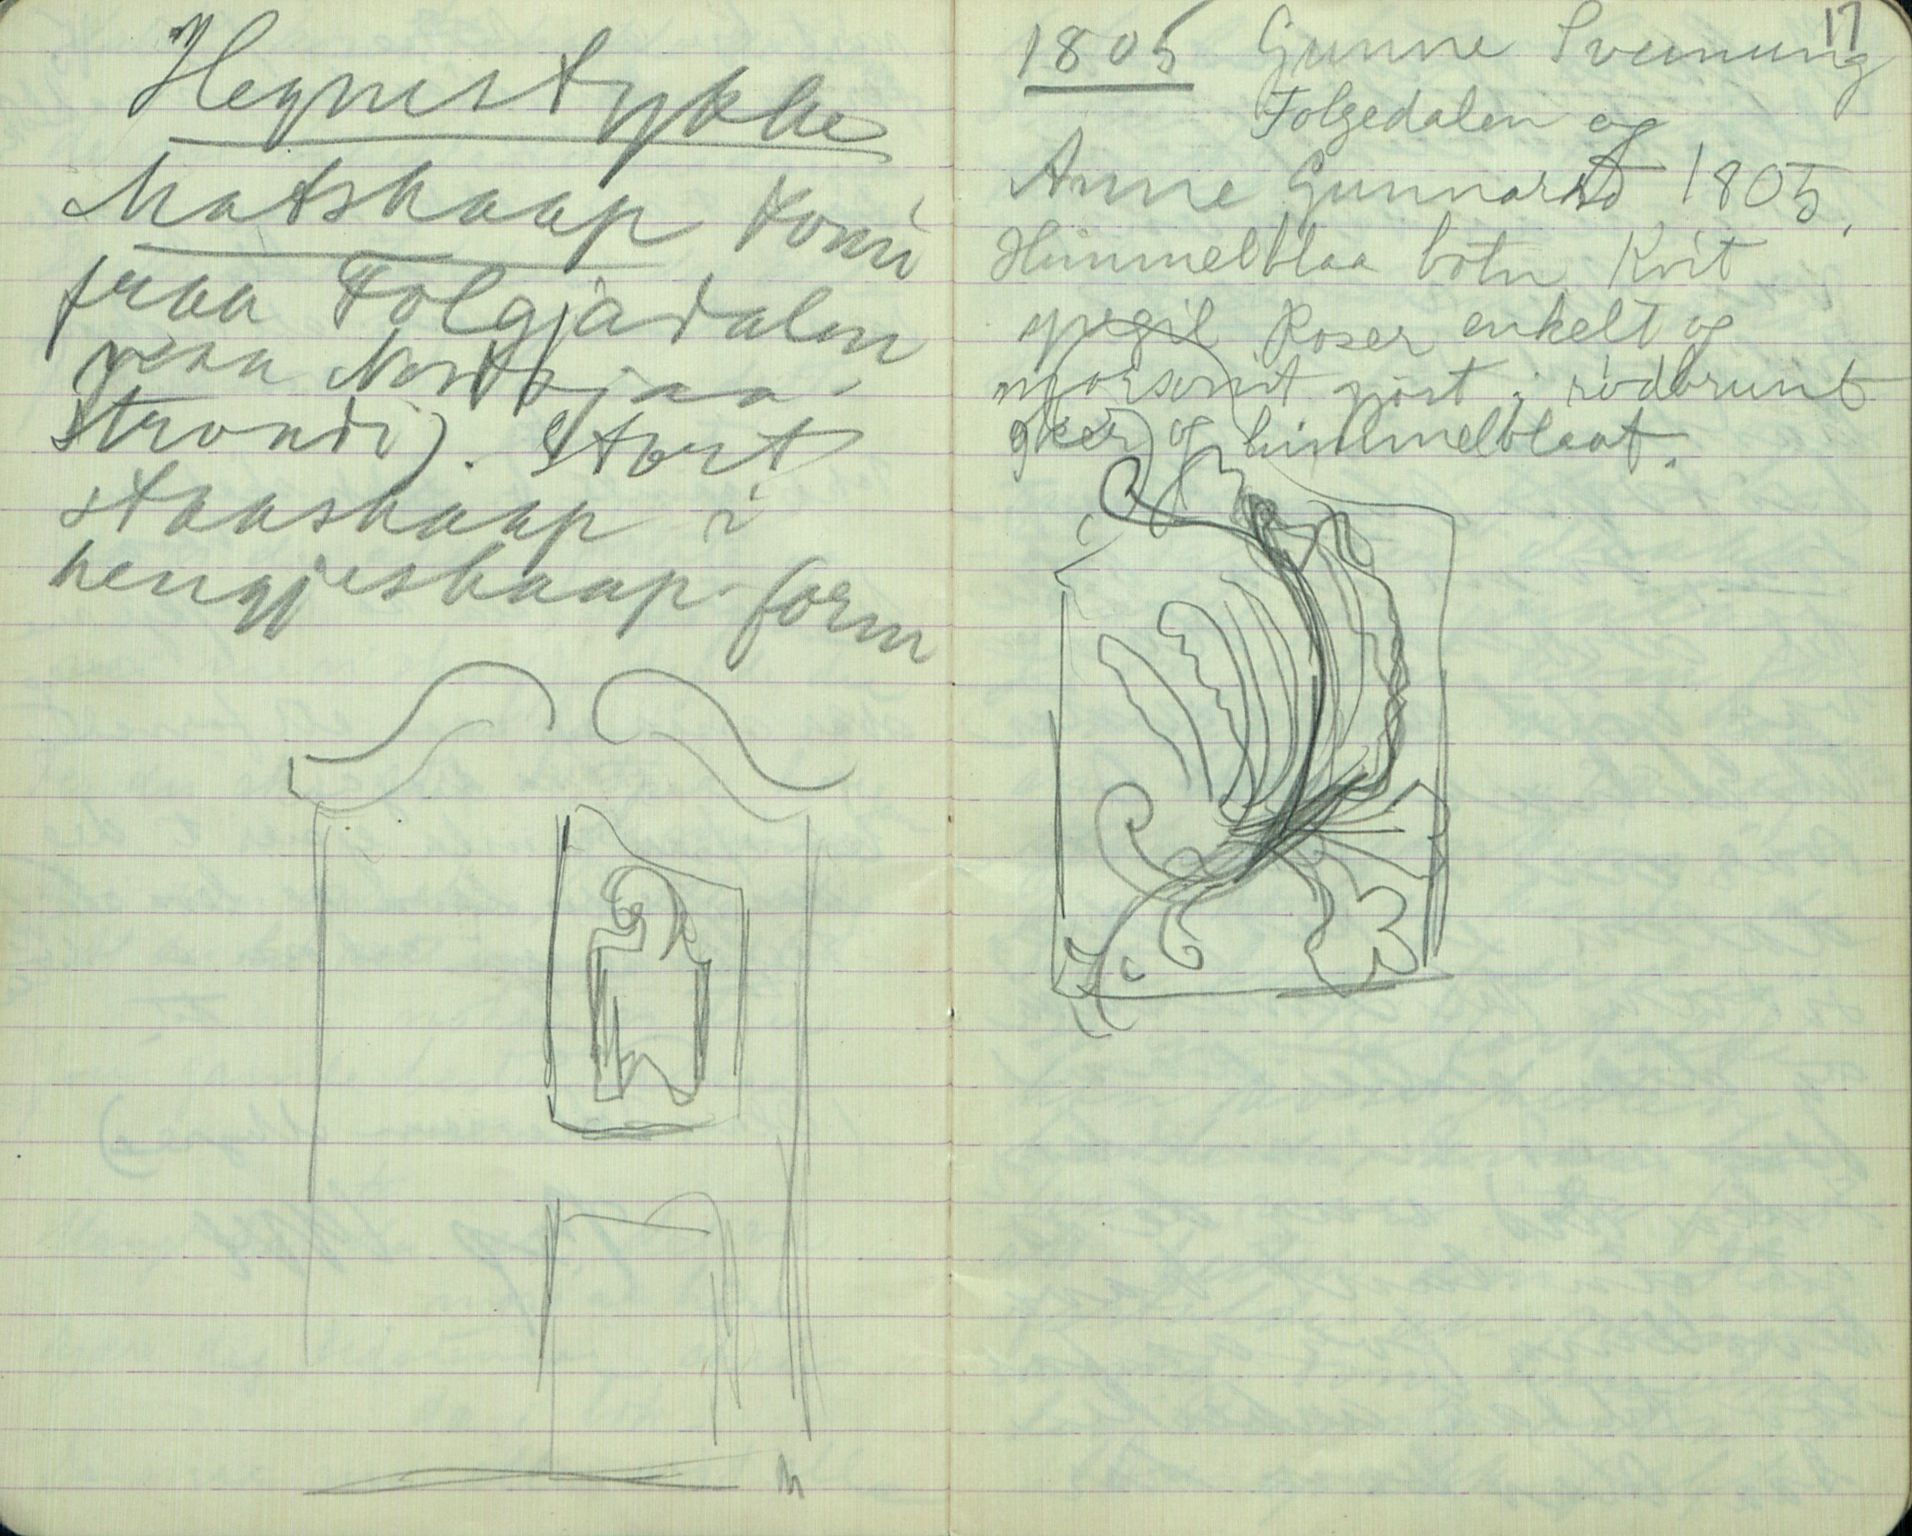 Hegnestykke
Matskaap komi
fraa Folgjadalen
Nordsjaa-
strondi). Stort
staaskaap i
hengjeskaap-form
17
1805 Gunne Sveinung
Folgedalen og
Anne Gunnars 1805.
Himmelblaa botn Kvit
spegil Roser enkelt og
i rödbrunt
og himmelblaat.